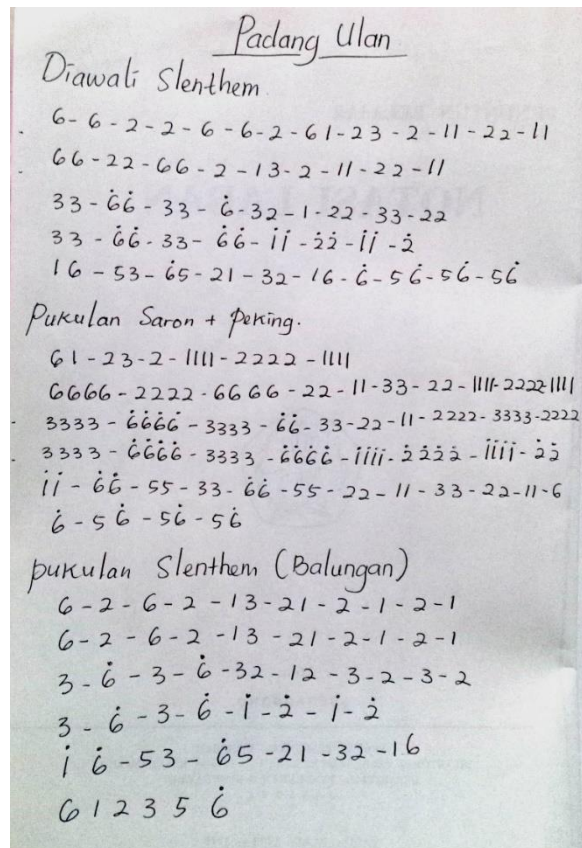 Padang Ulan
Diawali Slenthem.
6-6-2-2-6-6-2-61-23-2-11-22-11
66-22-66-2-13-2-11-22-11
33-6̇6̇-33-6̇-32-1-22-33-22
33-6̇6̇-33-6̇6̇-i̇i̇-2̇2̇-i̇i̇-2̇
16-53-6̇5-21-32-16-6̇-56̇-56̇-56̇
Pukulan Saron + Peking.
61-23-2-1111-2222-1111
6666-2222-6666-22-11-33-22-1111-2222-1111
3333-6̇6̇6̇6̇-3333-6̇6̇-33-22-11-2222-3333-2222
3333-6̇6̇6̇6̇-3333-6̇6̇6̇6̇-i̇i̇i̇i̇-2̇2̇2̇2̇-i̇i̇i̇i̇-2̇2̇
i̇i̇-6̇6̇-55-33-6̇6̇-55-22-11-33-22-11-6
6̇-56̇-56̇-56̇
pukulan Slenthem (Balungan)
6-2-6-2-13-21-2-1-2-1
6-2-6-2-13-21-2-1-2-1
3-6̇-3-6̇-32-12-3-2-3-2
3-6̇-3-6̇-i̇-2̇-i̇-2̇
i̇6̇-53-6̇5-21-32-16
6 1 2 3 5 6̇